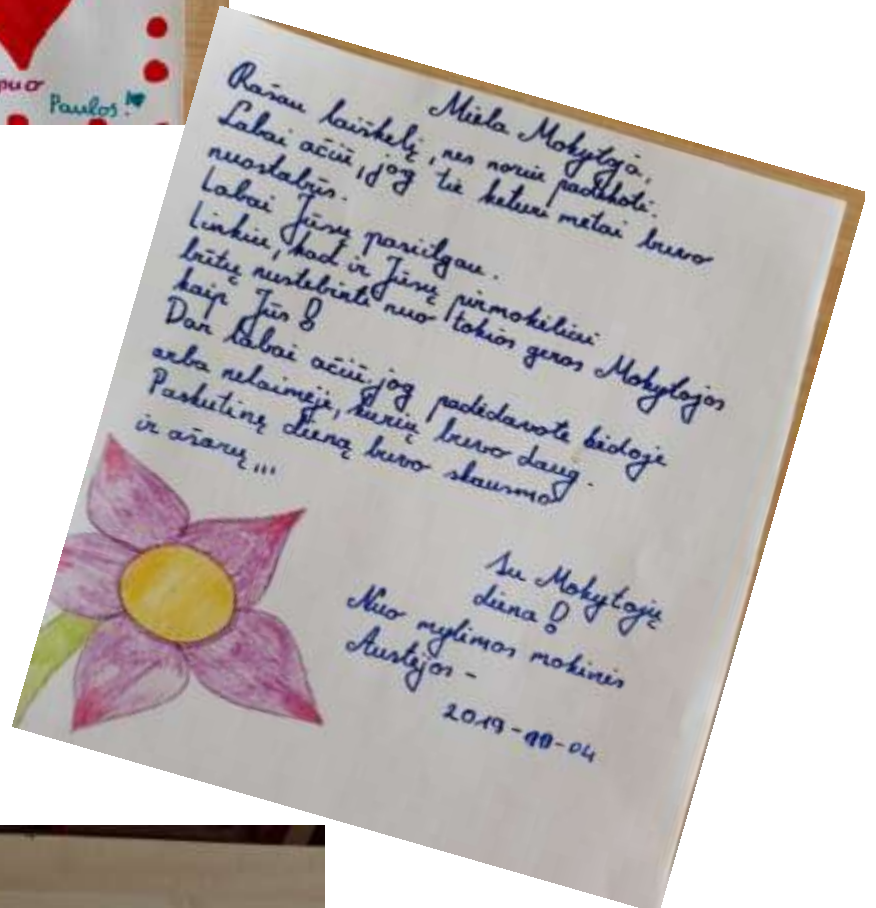 puo
Paulos!
Miela Mokytoja,
Rašau laiškelį, nes noriu padėkoti.
Labai ačiū, jog tie keturi metai buvo
nuostabūs.
Labai Jūsų pasiilgau.
Linkiu, kad ir Jūsų pirmokėliai
būtų nustebinti nuo tokios geros Mokytojos
kaip Jūs!
Dar labai ačiū, jog padėdavote bėdoje
arba nelaimėje, kurių buvo daug.
Paskutinę dieną buvo skausmo
ir ašarų...
Su Mokytojų
diena!
Nuo mylimos mokinės
Austėjos -
2019-10-04